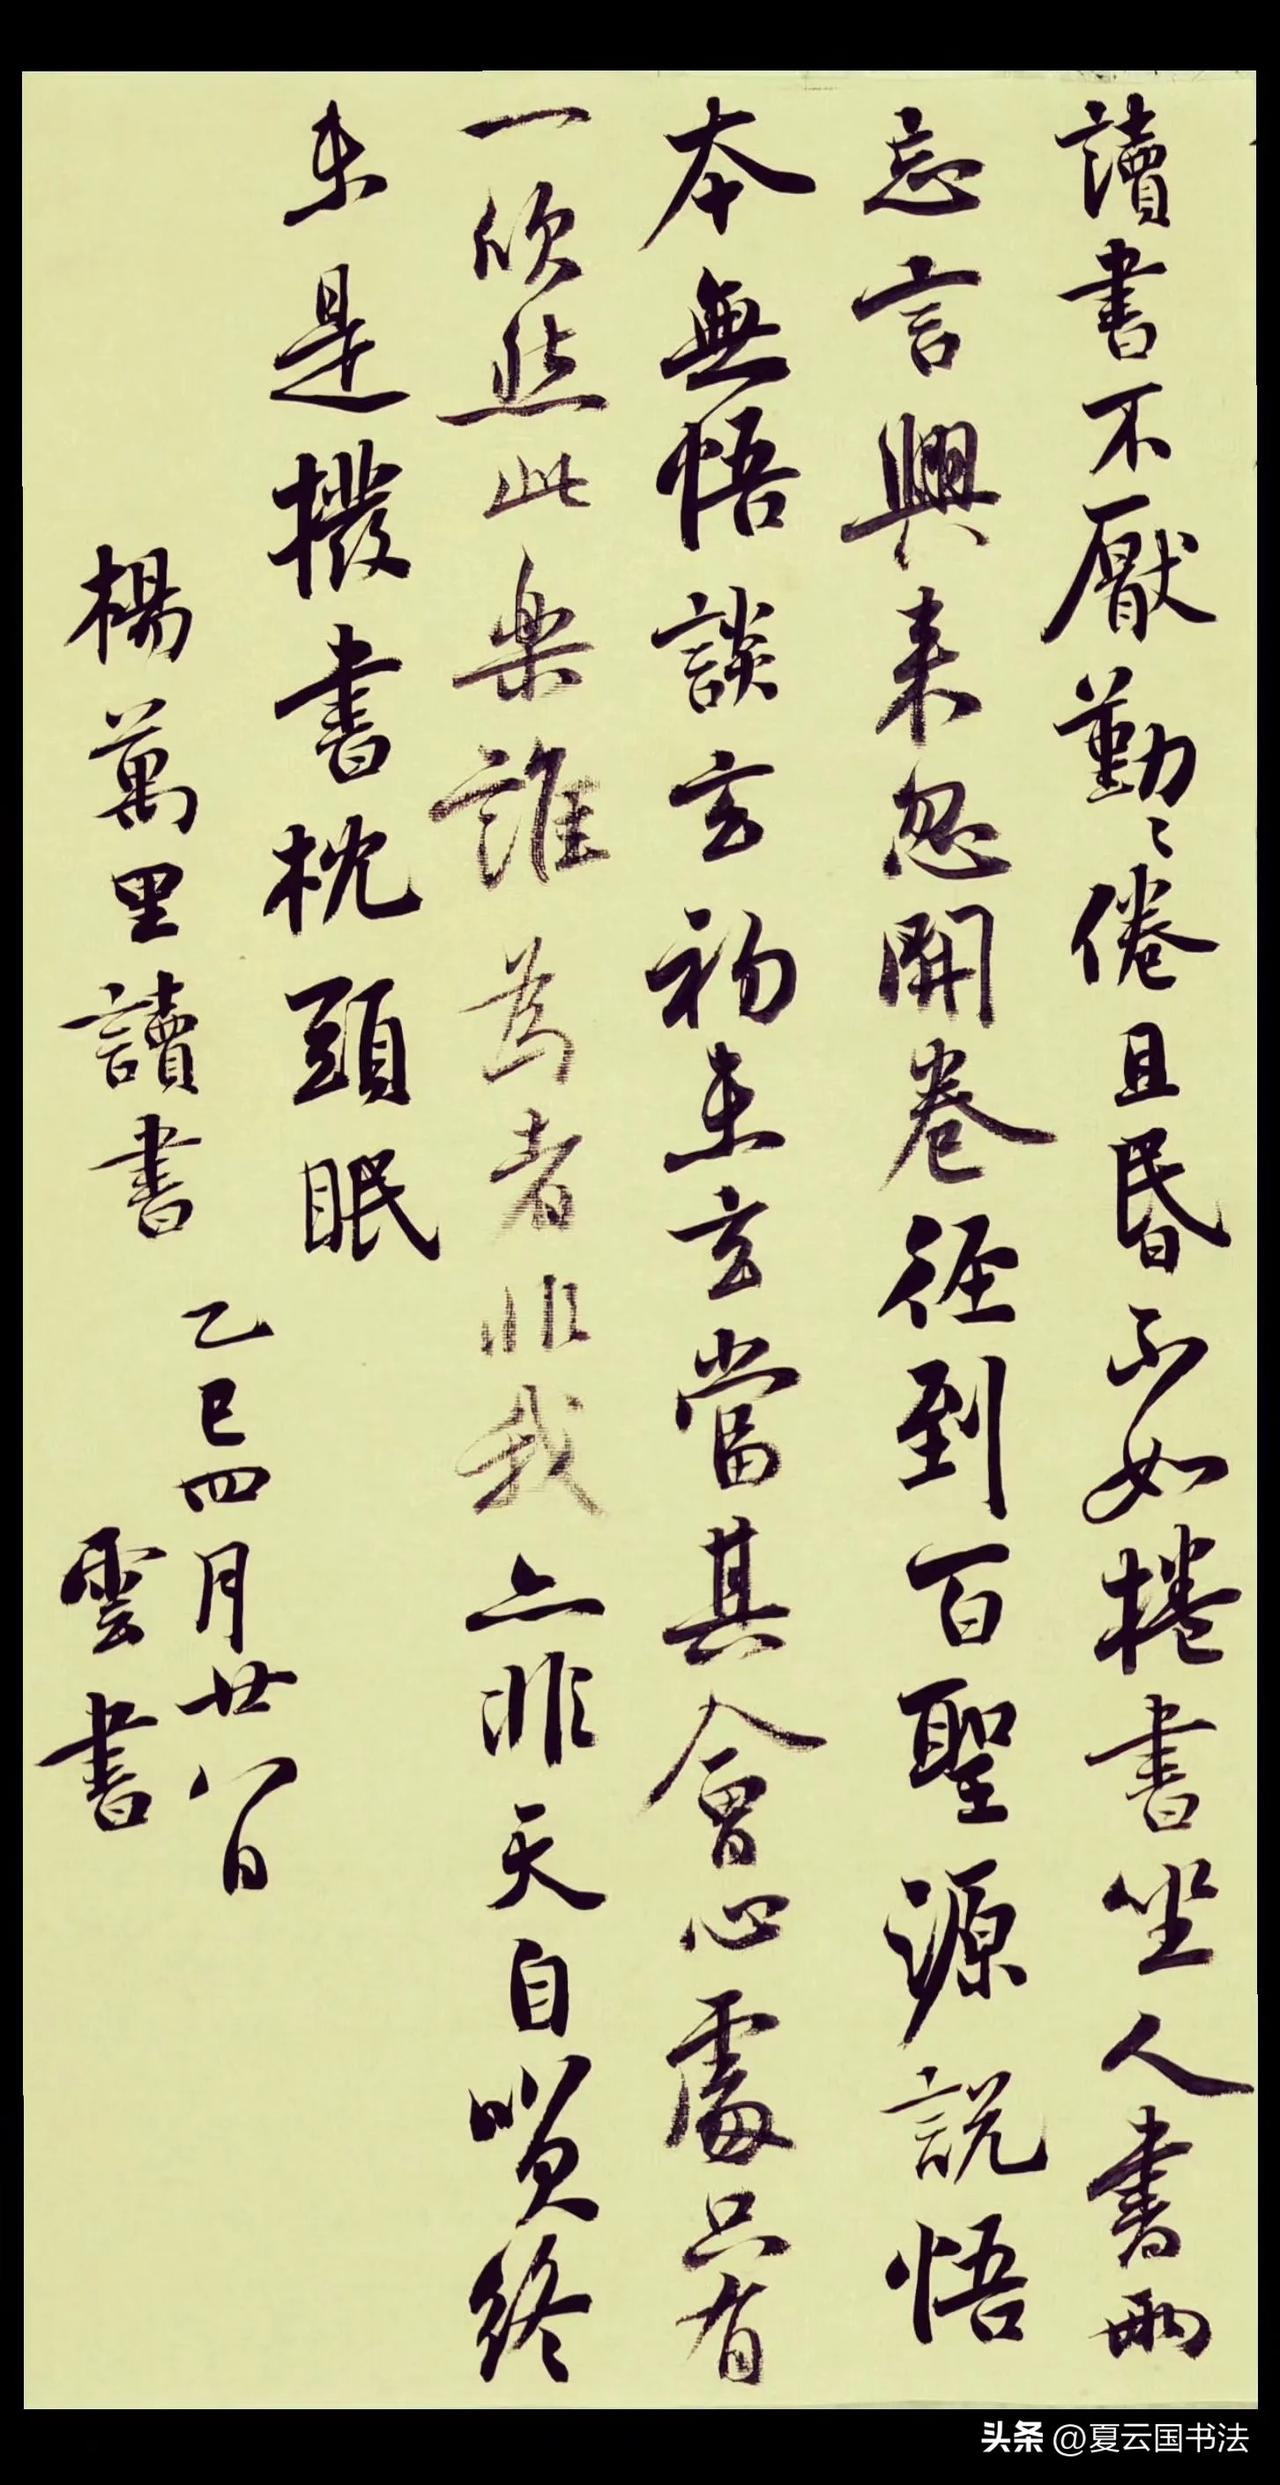 讀書不厭勤〻倦且昏不如捲書坐人書兩
忘言興来忽開卷径到百聖源説悟
本無悟談玄初未玄當其會心處只有
一欣然此楽誰為者非我亦非天自笑終
未是撥書枕頭眠
楊萬里讀書
乙巳四月廿八日
雲書
头条 @夏云国书法